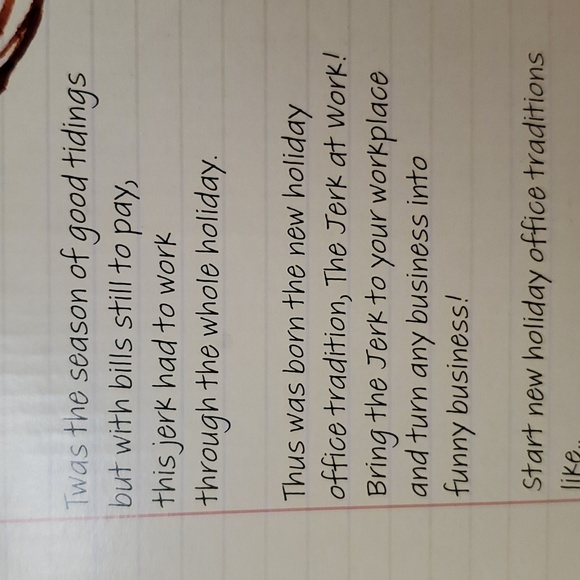 Twas the season of good tidings
but with bills still to pay,
this jerk had to work
through the whole holiday.
Thus was born the new holiday
office tradition, The Jerk at Work!
Bring the Jerk to your workplace
and turn any business into
funny business!
Start new holiday office traditions
like...